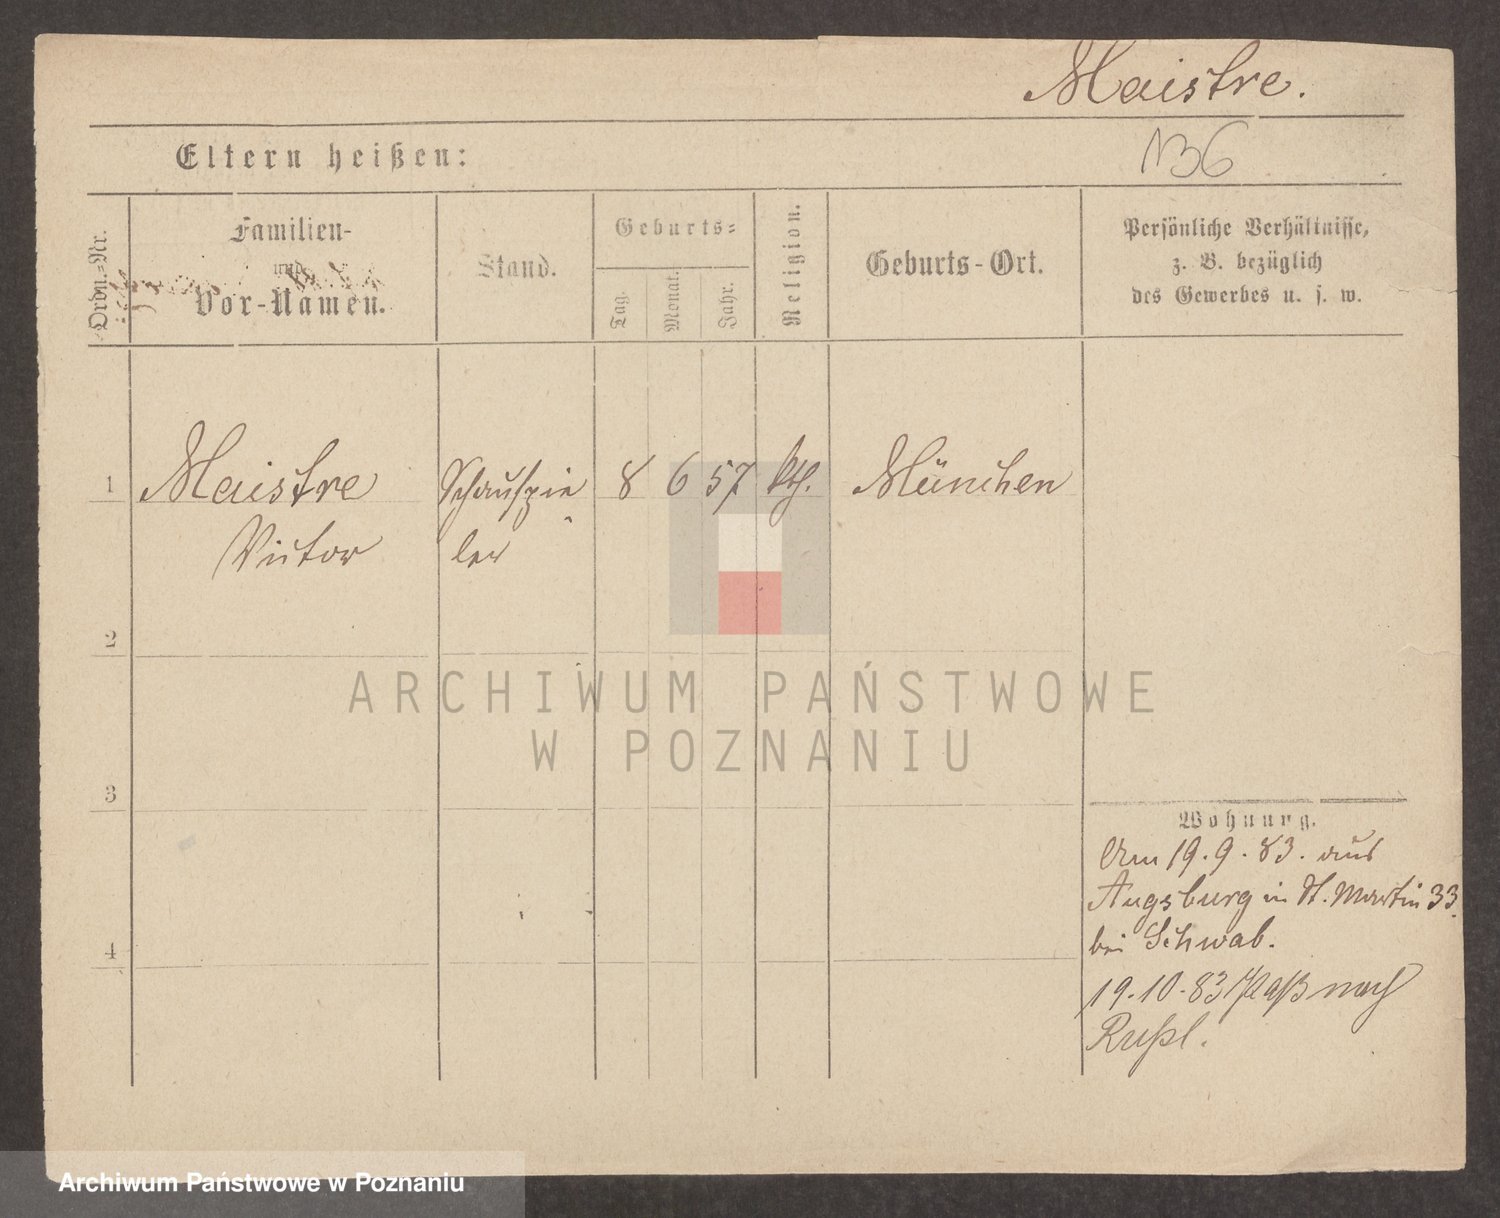 Maistre.
136
Eltern heißen:
Ordn.-Nr.
Familien-
und
Vor-Namen.
Stand.
Geburts-
Tag.
Monat.
Jahr.
Religion.
Geburts-Ort.
Persönliche Verhältnisse,
z. B. bezüglich
des Gewerbes u. s. w.
1 Maistre Schauspie 8 6 57 kth. München
Victor ler
2
3
4
Wohnung.
Am 19.9.83. aus
Augsburg in St. Martin 33.
bei Schwab.
19.10.83 Paß nach
Rußl.
ARCHIWUM PAŃSTWOWE
W POZNANIU
Archiwum Państwowe w Poznaniu